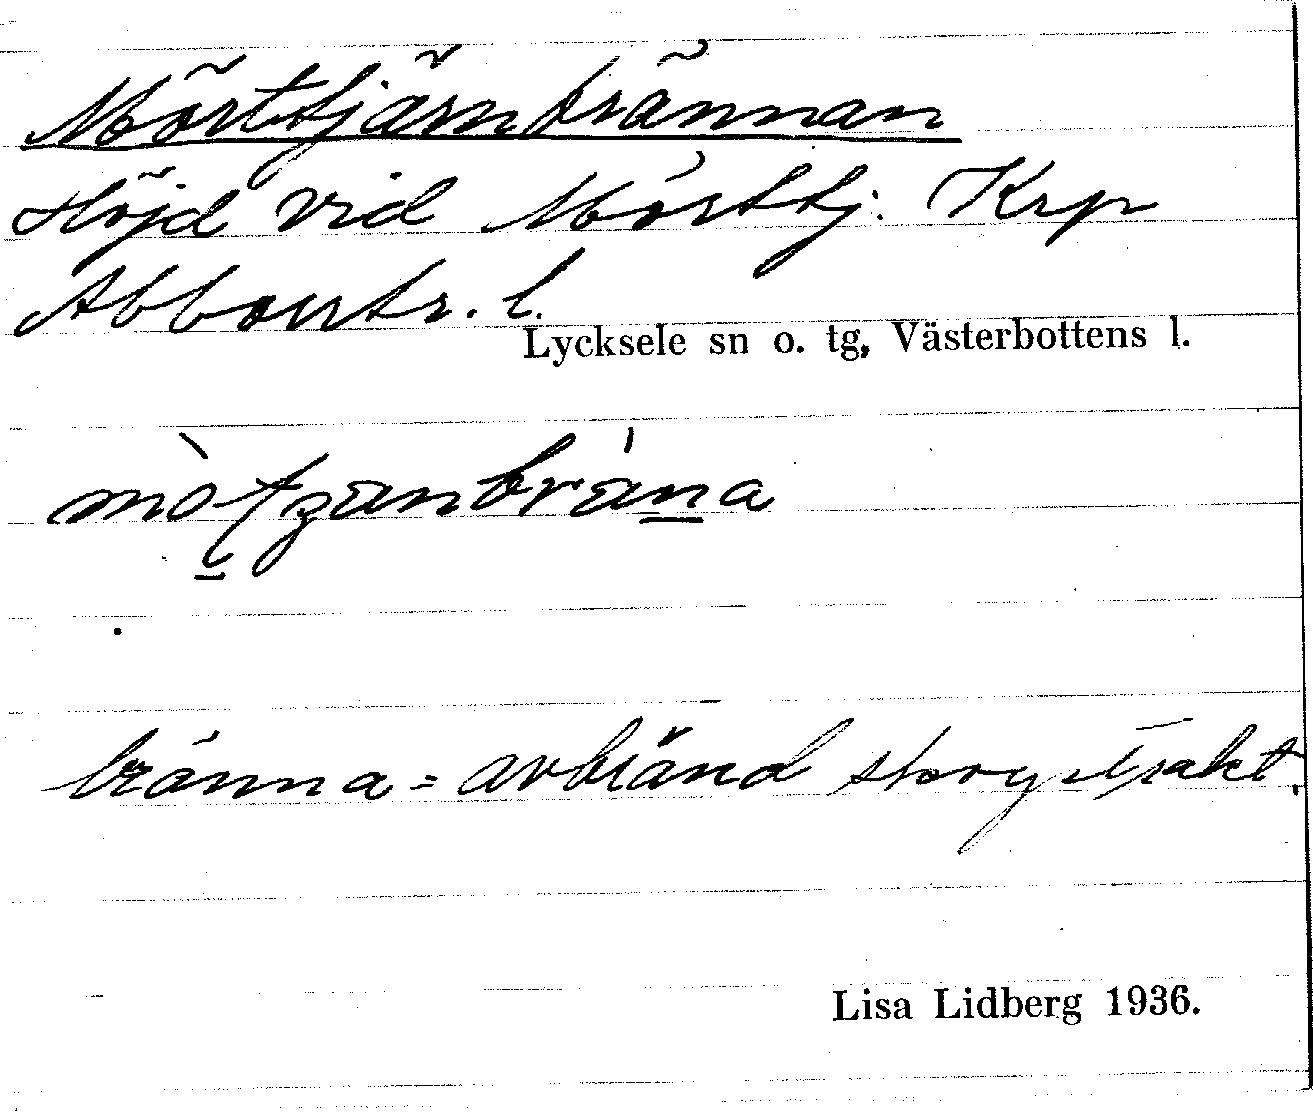 Mörttjärnbrännan
Höjd vid Mörttj. Krp
Abborrtr. l.
Lycksele sn o. tg, Västerbottens l.
bränna = avbränd skogstrakt.
Lisa Lidberg 1936.